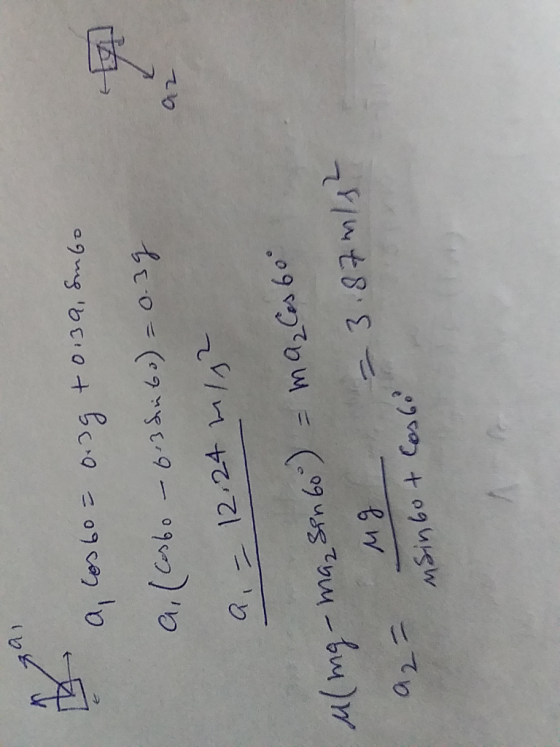 a1
a1 cos60 = 0.3g + 0.3a1 sin60
a1 (cos60 - 0.3sin60) = 0.3g
a1 = 12.24 m/s²
a2
μ(mg - ma2 sin60°) = ma2 cos60°
a2 = μg / μsin60 + cos60° = 3.87 m/s²